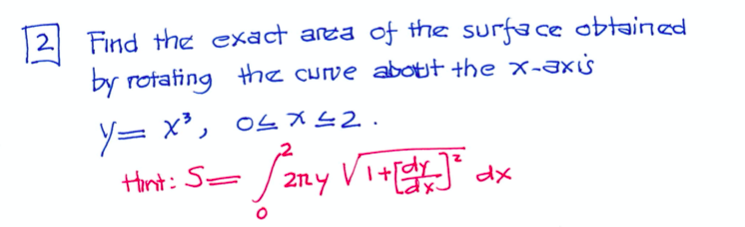 2 Find the exact area of the surface obtained
by rotating the curve about the x-axis
y = x³, 0 ≤ x ≤ 2.
Hint: S = ∫₀² 2πy √(1+[dy/dx]²) dx